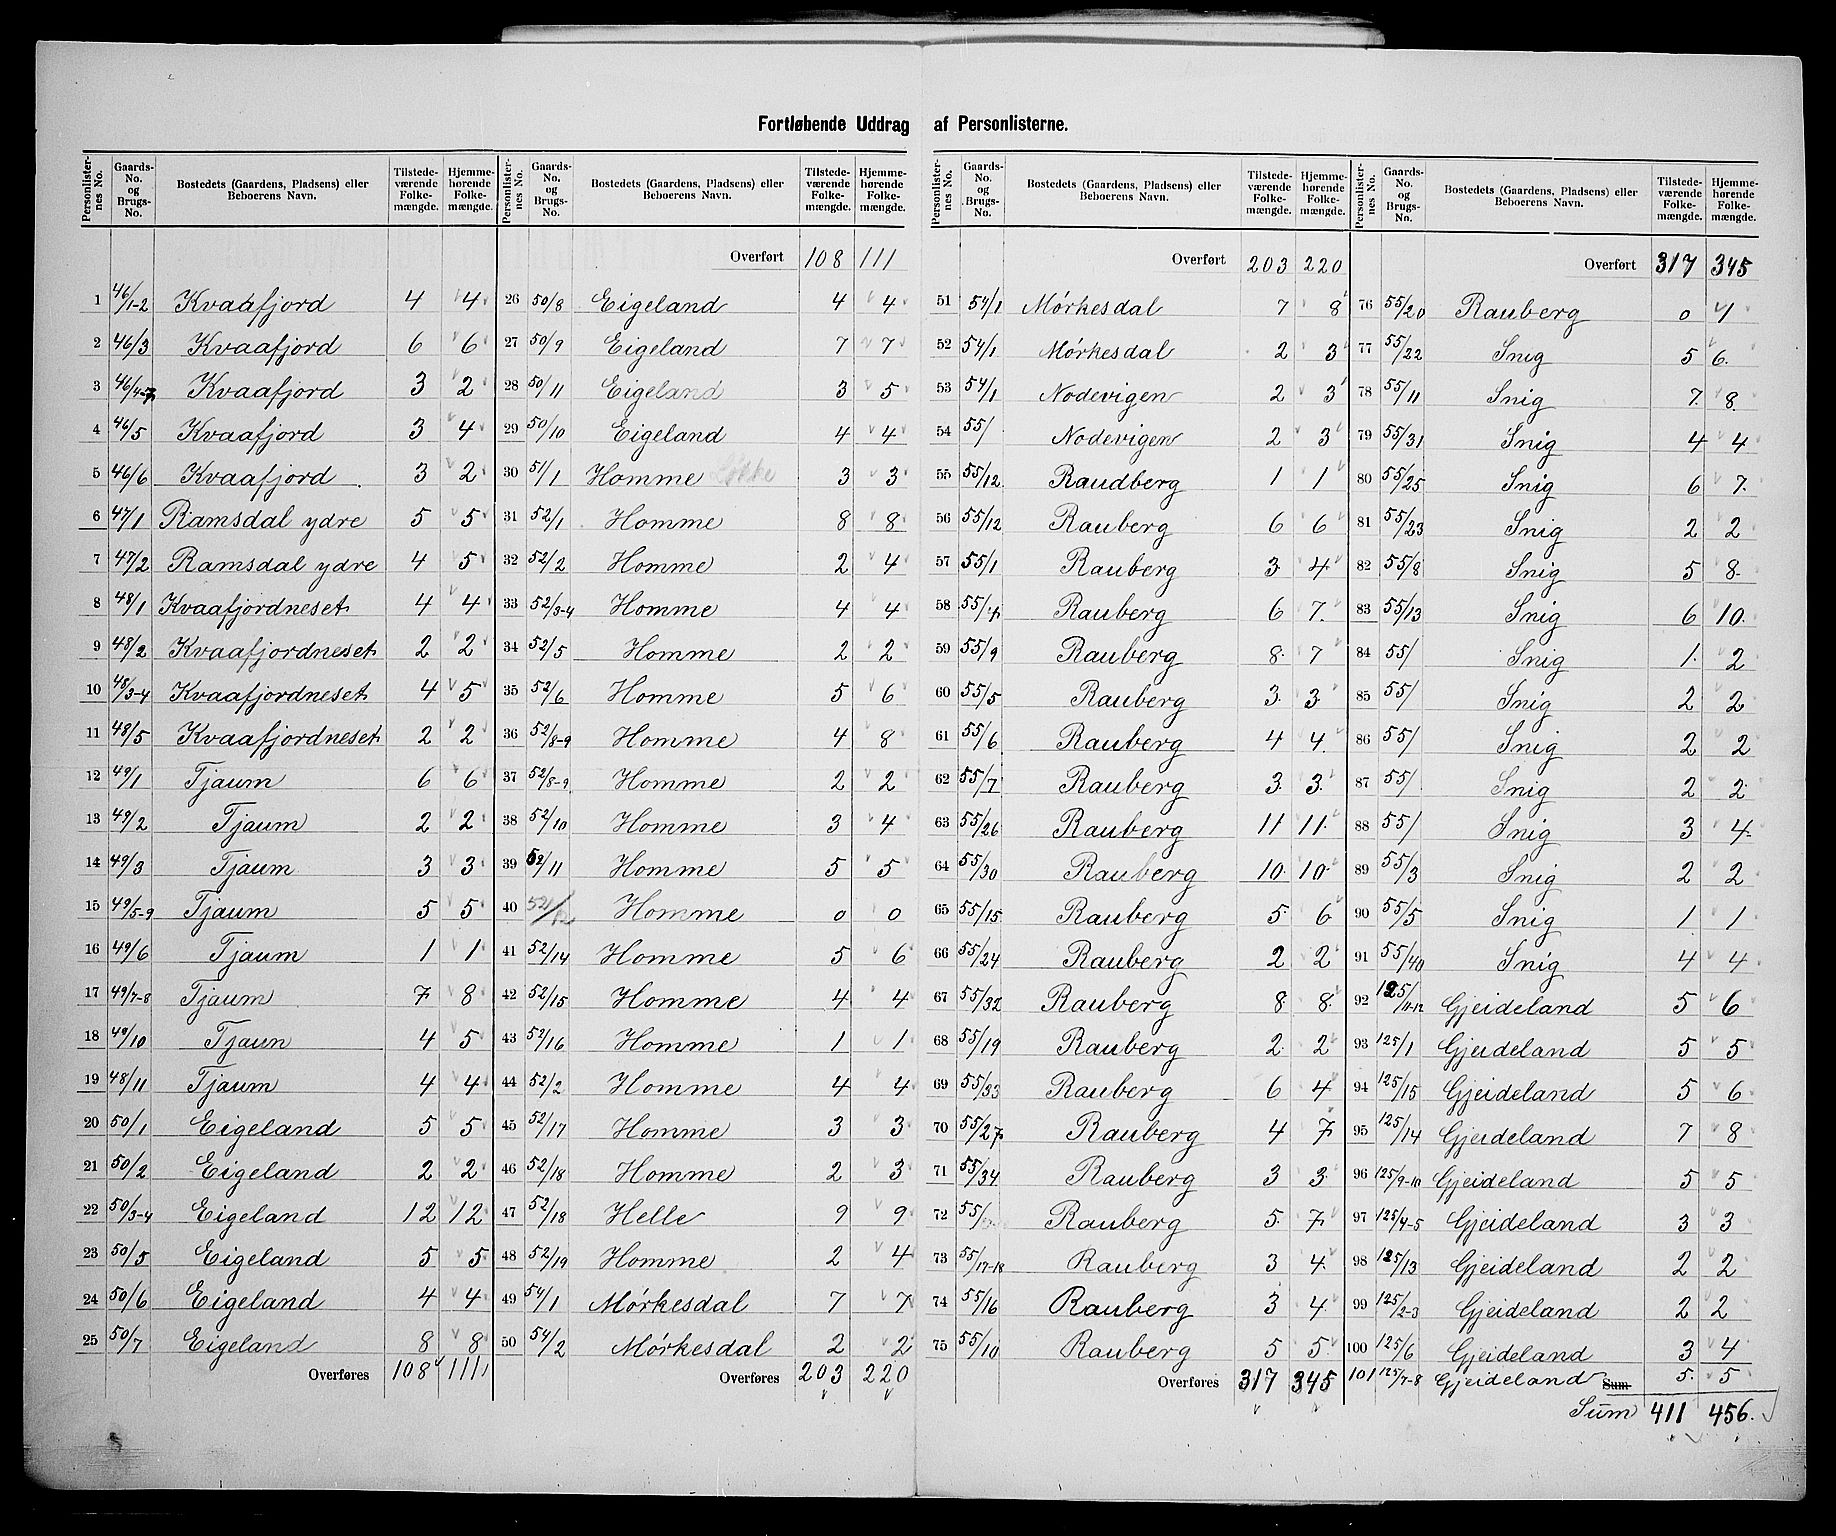 Fortløbende Uddrag af Personlisterne.
Personlister-nes No. | Gaards-No. og Brugs-No. | Bostedets (Gaardens, Pladsens) eller Beboerens Navn. | Tilstede-værende Folke-mængde. | Hjemme-hørende Folke-mængde.
1 46/1-2 Kvaafjord 4 4
2 46/3 Kvaafjord 6 6
3 46/4-7 Kvaafjord 3 2
4 46/5 Kvaafjord 3 4
5 46/6 Kvaafjord 3 2
6 47/1 Ramsdal ydre 5 5
7 47/2 Ramsdal ydre 4 5
8 48/1 Kvaafjordneset 4 4
9 48/2 Kvaafjordneset 2 2
10 48/3-4 Kvaafjordneset 4 5
11 48/5 Kvaafjordneset 2 2
12 49/1 Tjaum 6 6
13 49/2 Tjaum 2 2
14 49/3 Tjaum 3 3
15 49/5-9 Tjaum 5 5
16 49/6 Tjaum 1 1
17 49/7-8 Tjaum 7 8
18 49/10 Tjaum 4 5
19 48/11 Tjaum 4 4
20 50/1 Eigeland 5 5
21 50/2 Eigeland 2 2
22 50/3-4 Eigeland 12 12
23 50/5 Eigeland 5 5
24 50/6 Eigeland 4 4
25 50/7 Eigeland 8 8
Overføres 108 111
Personlister-nes No. | Gaards-No. og Brugs-No. | Bostedets (Gaardens, Pladsens) eller Beboerens Navn. | Tilstede-værende Folke-mængde. | Hjemme-hørende Folke-mængde.
Overført 108 111
26 50/8 Eigeland 4 4
27 50/9 Eigeland 7 7
28 50/11 Eigeland 3 5
29 50/10 Eigeland 4 4
30 51/1 Homme 3 3
31 52/1 Homme 8 8
32 52/2 Homme 2 4
33 52/3-4 Homme 4 4
34 52/5 Homme 2 2
35 52/6 Homme 5 6
36 52/8-9 Homme 4 8
37 52/8-9 Homme 2 2
38 52/10 Homme 3 4
39 52/11 Homme 5 5
40 52/12 Homme 0 0
41 52/14 Homme 5 6
42 52/15 Homme 4 4
43 52/16 Homme 1 1
44 52/2 Homme 4 4
45 52/17 Homme 3 3
46 52/18 Homme 2 3
47 52/18 Helle 9 9
48 52/19 Homme 2 4
49 54/1 Mørkesdal 7 7
50 54/2 Mørkesdal 2 2
Overføres 203 220
Personlister-nes No. | Gaards-No. og Brugs-No. | Bostedets (Gaardens, Pladsens) eller Beboerens Navn. | Tilstede-værende Folke-mængde. | Hjemme-hørende Folke-mængde.
Overført 203 220
51 54/1 Mørkesdal 7 8
52 54/1 Mørkesdal 2 3
53 54/1 Nodevigen 2 3
54 55/ Nodevigen 2 3
55 55/12 Raudberg 1 1
56 55/12 Rauberg 6 6
57 55/1 Rauberg 3 4
58 55/4 Rauberg 6 7
59 55/9 Rauberg 8 7
60 55/5 Rauberg 3 3
61 55/6 Rauberg 4 4
62 55/7 Rauberg 3 3
63 55/26 Rauberg 11 11
64 55/30 Rauberg 10 10
65 55/15 Rauberg 5 6
66 55/24 Rauberg 2 2
67 55/32 Rauberg 8 8
68 55/19 Rauberg 2 2
69 55/33 Rauberg 6 4
70 55/27 Rauberg 4 7
71 55/34 Rauberg 3 3
72 55/ Rauberg 5 7
73 55/17-18 Rauberg 3 4
74 55/16 Rauberg 3 4
75 55/10 Rauberg 5 5
Overføres 317 345
Personlister-nes No. | Gaards-No. og Brugs-No. | Bostedets (Gaardens, Pladsens) eller Beboerens Navn. | Tilstede-værende Folke-mængde. | Hjemme-hørende Folke-mængde.
Overført 317 345
76 55/20 Rauberg 0 4
77 55/22 Snig 5 6
78 55/11 Snig 7 8
79 55/31 Snig 4 4
80 55/25 Snig 6 7
81 55/23 Snig 2 2
82 55/8 Snig 5 8
83 55/13 Snig 6 10
84 55/ Snig 1 2
85 55/ Snig 2 2
86 55/ Snig 2 2
87 55/ Snig 2 2
88 55/ Snig 3 4
89 55/3 Snig 2 2
90 55/5 Snig 1 1
91 55/40 Snig 4 4
92 125/11-12 Gjeideland 5 6
93 125/1 Gjeideland 5 5
94 125/15 Gjeideland 5 6
95 125/14 Gjeideland 7 8
96 125/9-10 Gjeideland 5 5
97 125/4-5 Gjeideland 3 3
98 125/13 Gjeideland 2 2
99 125/2-3 Gjeideland 2 2
100 125/6 Gjeideland 3 4
101 125/7-8 Gjeideland Sum 5 5
Sum 411 456